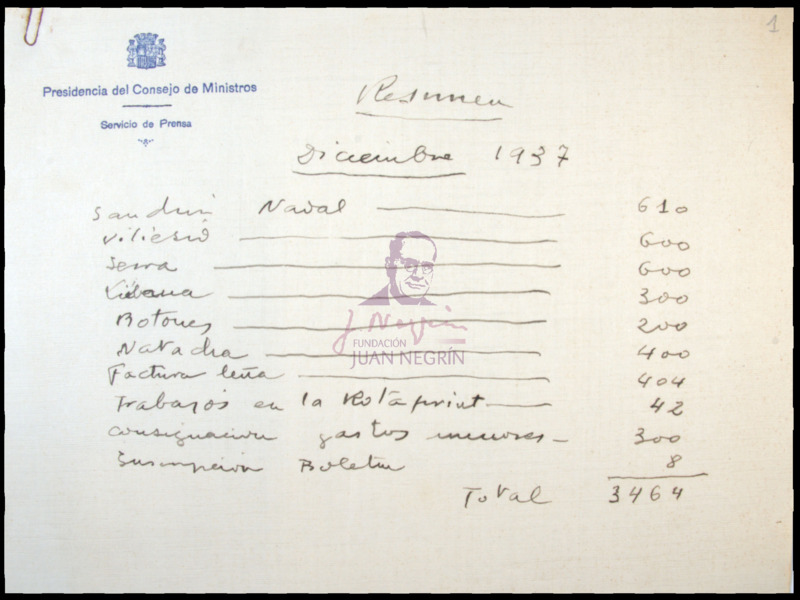 1
Presidencia del Consejo de Ministros
Servicio de Prensa
Resumen
Diciembre 1937
Naval 610
600
Serra 600
300
Botones 200
Natacha 400
Factura leña 404
Trabajos en la Rotaprint 42
Consignación gastos menores 300
Suscripción Boletín 8
Total 3464
J. Negrín
FUNDACIÓN
JUAN NEGRÍN